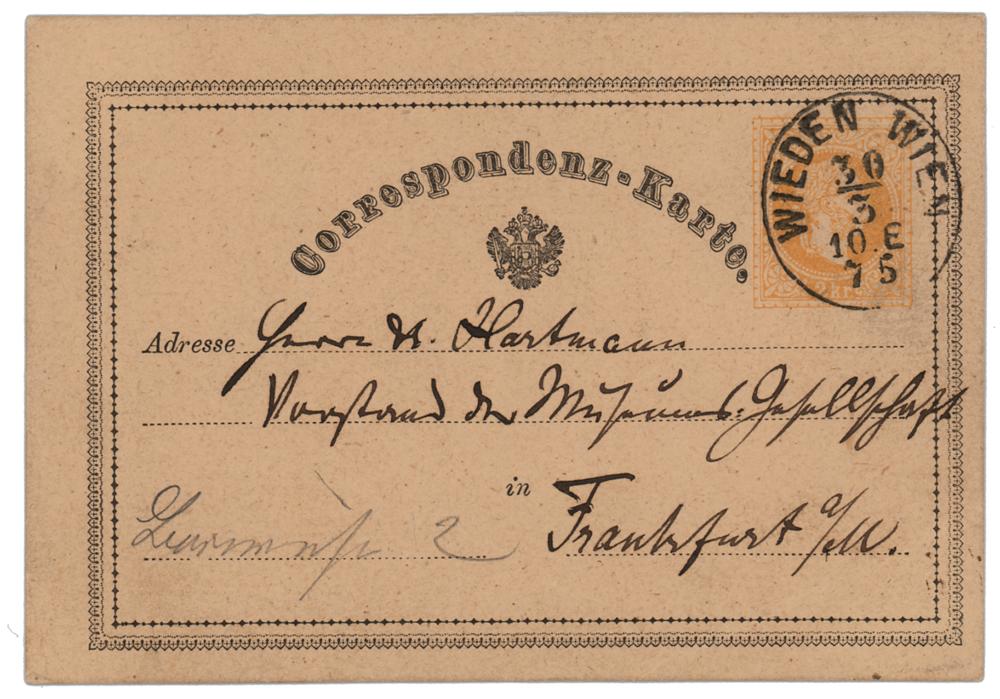 Correspondenz-Karte.
WIEDEN WIEN
30
10.E
75
2 kr
Adresse Herrn H. Hartmann
Vorstand der Museums-Gesellschaft
in
Frankfurt a/M.
2